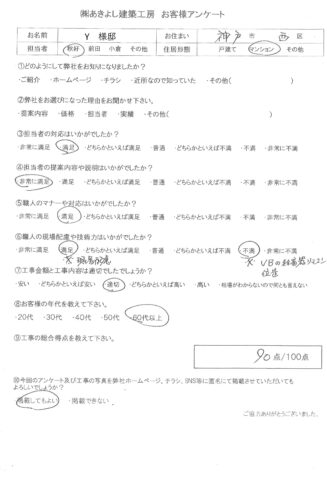 ㈱あきよし建築工房 お客様アンケート
お名前 Y 様邸 お住まい 神戸 市 西 区
担当者 秋好 前田 小倉 その他 住居形態 戸建て マンション その他
①どのようにして弊社をお知りになりましたか？
・ご紹介 ・ホームページ ・チラシ ・近所なので知っていた ・その他( )
②弊社をお選びになった理由をお聞かせ下さい。
・提案内容 ・価格 ・担当者 ・実績 ・その他( )
③担当者の対応はいかがでしたか？
・非常に満足 ・満足 ・どちらかといえば満足 ・普通 ・どちらかといえば不満 ・不満 ・非常に不満
④担当者の提案内容や説明はいかがでしたか？
・非常に満足 ・満足 ・どちらかといえば満足 ・普通 ・どちらかといえば不満 ・不満 ・非常に不満
⑤職人のマナーや対応はいかがでしたか？
・非常に満足 ・満足 ・どちらかといえば満足 ・普通 ・どちらかといえば不満 ・不満 ・非常に不満
⑥職人の現場配慮や技術力はいかがでしたか？
・非常に満足 ・満足 ・どちらかといえば満足 ・普通 ・どちらかといえば不満 ・不満 ・非常に不満
※ 現場配慮
※ UBの
位置
⑦工事金額と工事内容は適切でしたでしょうか？
・安い ・どちらかといえば安い ・適切 ・どちらかといえば高い ・高い ・相場がわからないので何とも言えない
⑧お客様の年代を教えて下さい。
・20代 ・30代 ・40代 ・50代 ・60代以上
⑨工事の総合得点を教えて下さい。
90 点/100点
⑩今回のアンケート及び工事の写真を弊社ホームページ、チラシ、SNS等に匿名にて掲載させていただいても
よろしいでしょうか？
・掲載してもよい ・掲載できない
ご協力ありがとうございました。